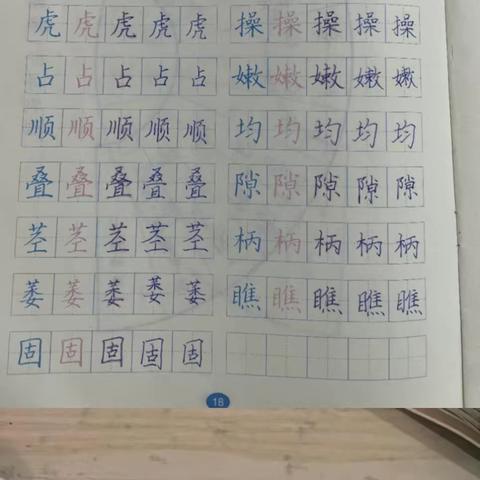 虎虎虎虎虎 操操操操操
占占占占占 嫩嫩嫩嫩嫩
顺顺顺顺顺 均均均均均
叠叠叠叠叠 隙隙隙隙隙
茎茎茎茎茎 柄柄柄柄柄
萎萎萎萎萎 瞧瞧瞧瞧瞧
固固固固固
18